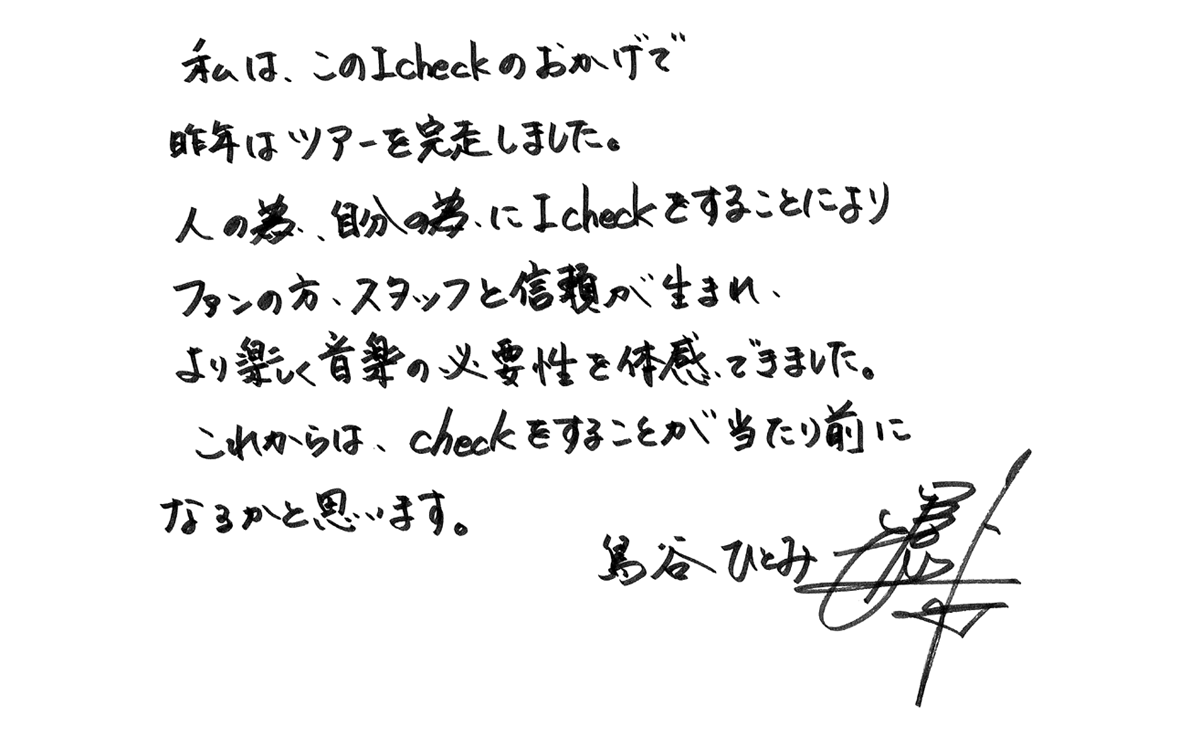 私は、このIcheckのおかげで
昨年はツアーを完走しました。
人の為、自分の為、にIcheckをすることにより
ファンの方、スタッフと信頼が生まれ、
より楽しく音楽の必要性を体感できました。
これからは、checkをすることが当たり前に
なるかと思います。
島谷ひとみ